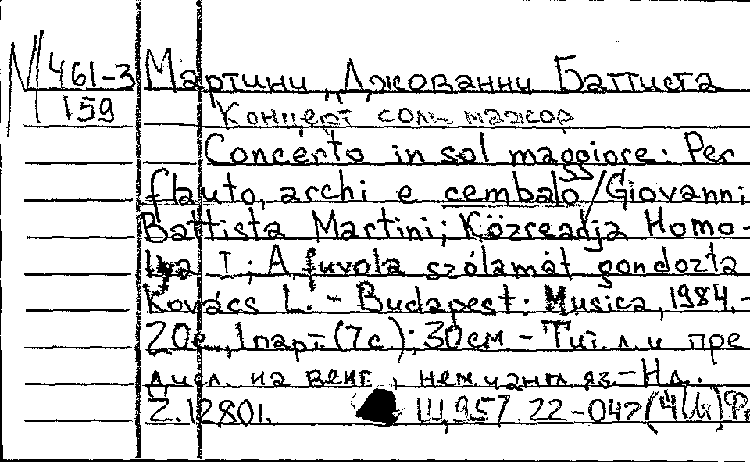 М 461-3 Мартини, Джованни Баттиста
159 Концерт соль мажор
Concerto in sol maggiore: Per
flauto, archi e cembalo/Giovanni
Battista Martini; Közreadja Homo-
lya I; A fuvola szólamát gondozta
Kovács L. - Budapest: Musica, 1984.-
20с., 1 парт (7с); 30см - Тит. л. и пре
дисл. на венг, нем, и англ яз. - Н.д.
Z.12801. Ш957 22-047